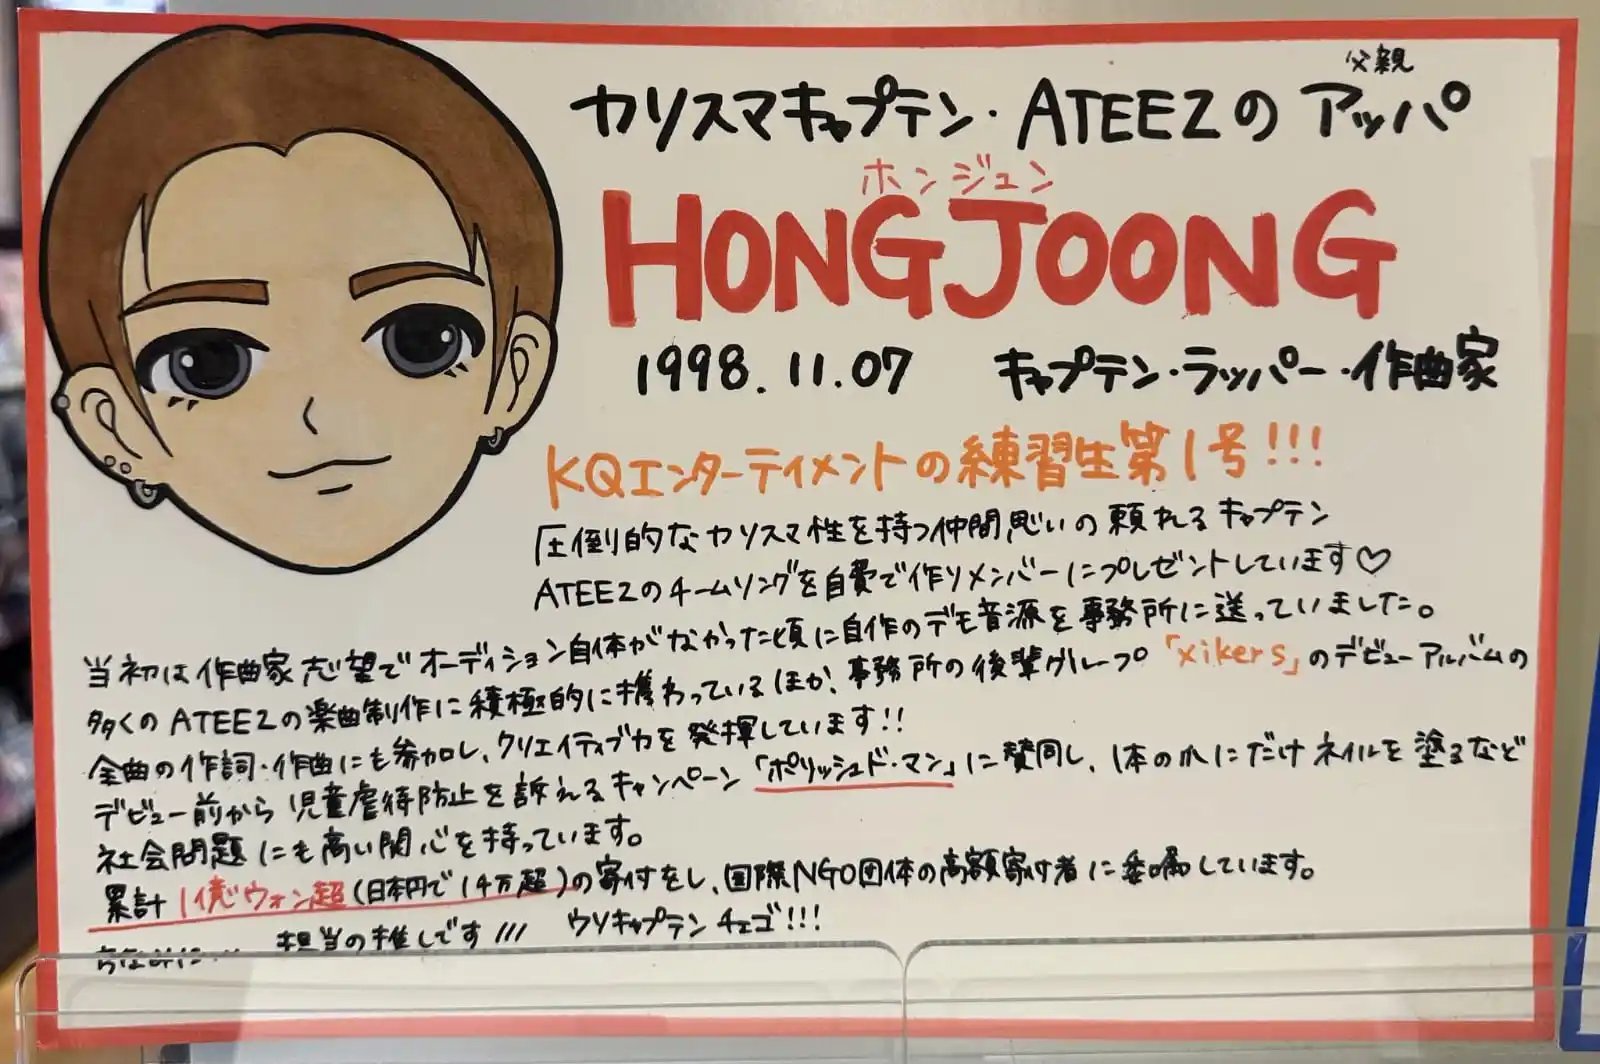 カリスマキャプテン・ATEEZのアッパ
父親
ホンジュン
HONGJOONG
1998.11.07 キャプテン・ラッパー・作曲家
KQエンターテイメントの練習生第1号!!!
圧倒的なカリスマ性を持つ仲間思いの頼れるキャプテン
ATEEZのチームソングを自費で作りメンバーにプレゼントしています♡
当初は作曲家志望でオーディション自体がなかった頃に自作のデモ音源を事務所に送っていました。
多くのATEEZの楽曲制作に積極的に携わっているほか、事務所の後輩グループ「xikers」のデビューアルバムの
全曲の作詞・作曲にも参加し、クリエイティブ力を発揮しています!!
デビュー前から児童虐待防止を訴えるキャンペーン「ポリッシュド・マン」に賛同し、1本の爪にだけネイルを塗るなど
社会問題にも高い関心を持っています。
累計1億ウォン超(日本円で14万超)の寄付をし、国際NGO団体の高額寄付者に委嘱しています。
担当の推しです!!! ウリキャプテンチェゴ!!!